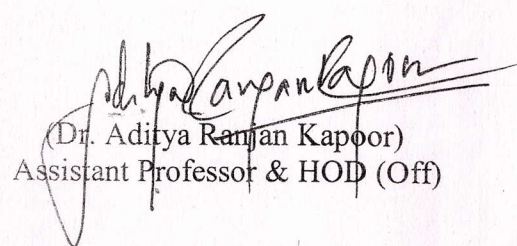 Aditya Ranjan Kapoor
(Dr. Aditya Ranjan Kapoor)
Assistant Professor & HOD (Off)